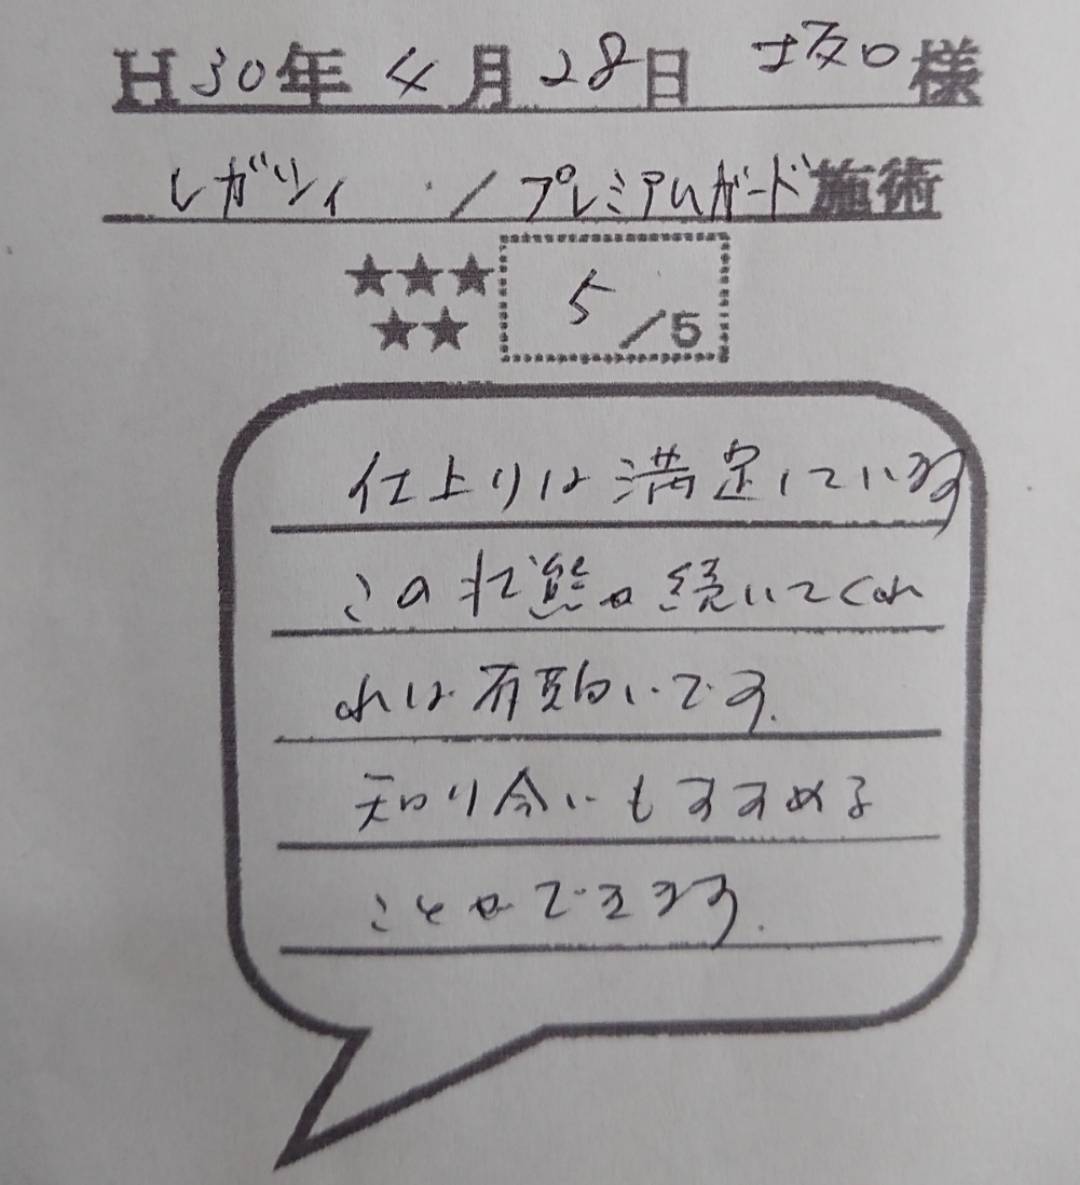 H30年 4月28日 坂口様
レガシィ ／プレミアムガード施術
★★★
★★
5／5
仕上りは満足しています
この状態が続いてくれ
れば有難いです.
知り合いにもすすめる
ことができます.